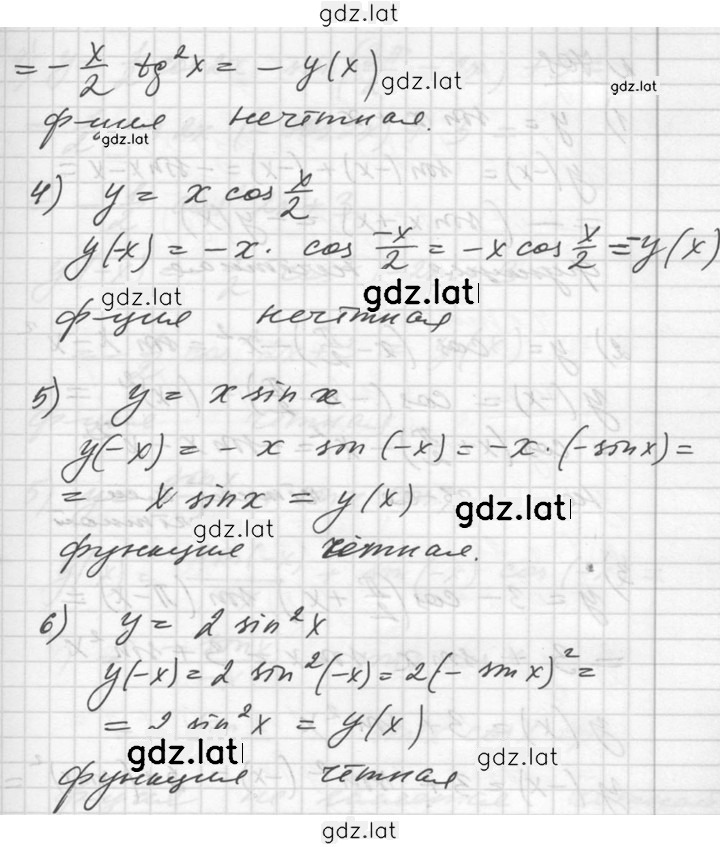 gdz.lat
= - x/2 tg²x = - y(x)
gdz.lat
gdz.lat
ф-ция нечётная.
gdz.lat
4) y = x cos x/2
y(-x) = -x · cos -x/2 = -x cos x/2 = -y(x)
gdz.lat
gdz.lat
ф-ция нечётная
5) y = x sin x
y(-x) = - x = sin (-x) = -x · (-sin x) =
= x sin x = y(x)
gdz.lat
gdz.lat
функция чётная.
6) y = 2 sin²x
y(-x) = 2 sin²(-x) = 2(- sin x)² =
= 2 sin²x = y(x)
gdz.lat
gdz.lat
функция чётная
gdz.lat